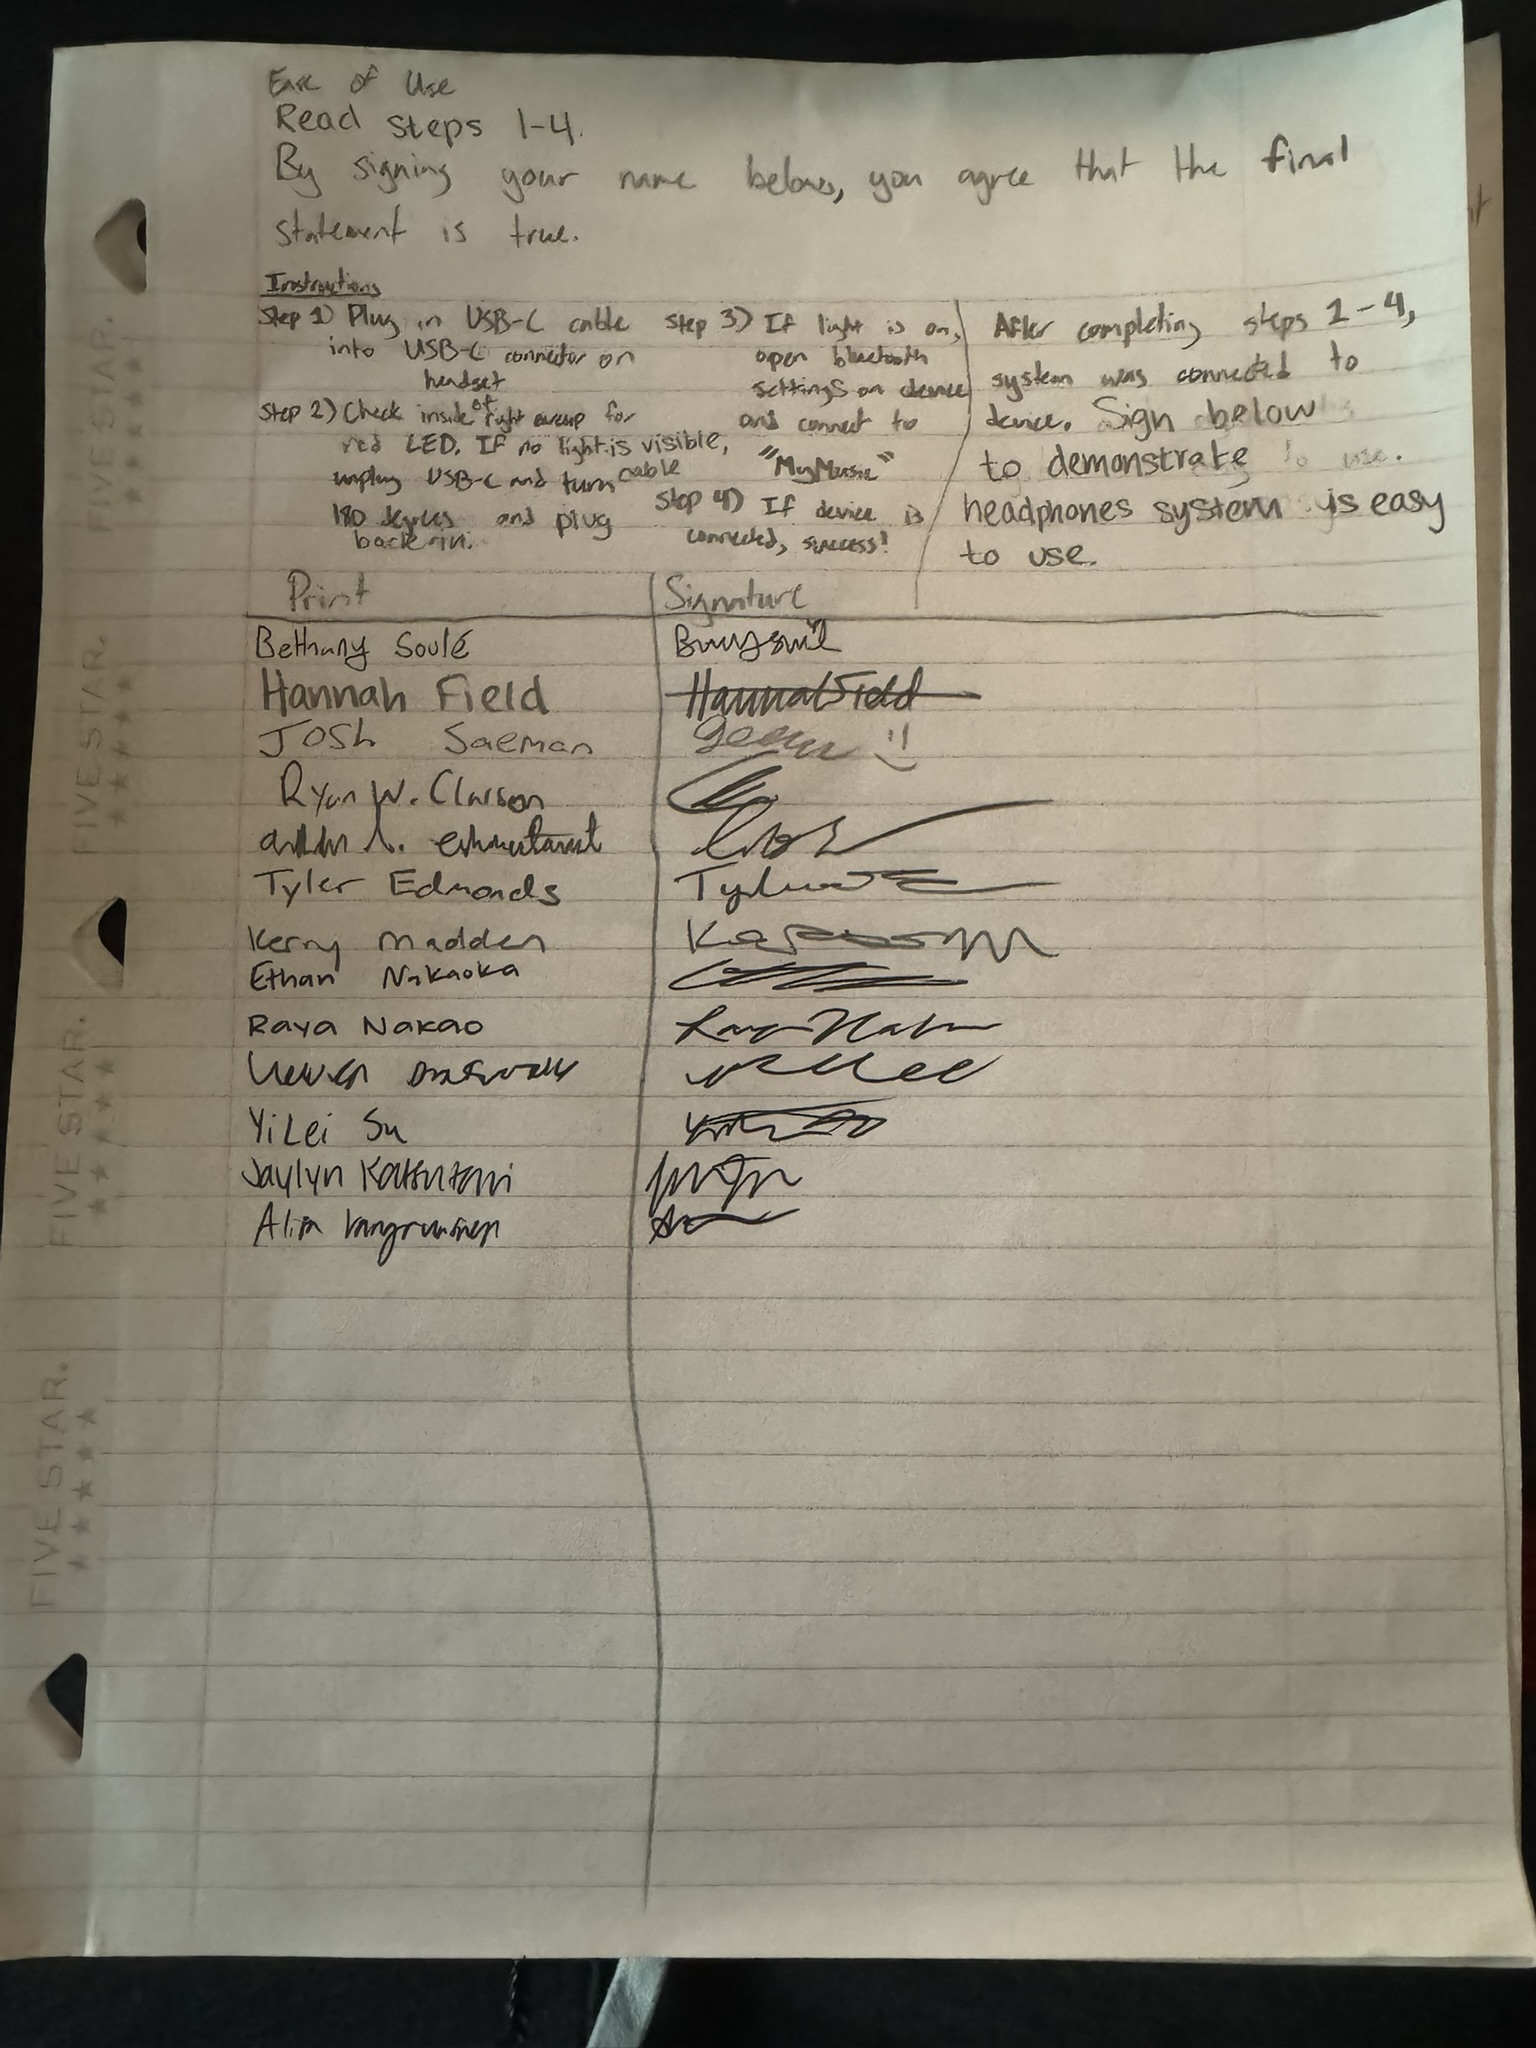 Ease of Use
Read steps 1-4.
By signing your name below, you agree that the final
statement is true.
Instructions
Step 1) Plug in USB-C cable
into USB-C connector on
headset
Step 2) Check inside of right earcup for
red LED. If no light is visible,
unplug USB-C and turn cable
180 degrees and plug
back in.
Step 3) If light is on,
open bluetooth
settings on device
and connect to
"MyMusic"
Step 4) If device is
connected, success!
After completing steps 1-4,
system was connected to
device. Sign below
to demonstrate
headphones system is easy
to use.
Print Signature
Bethany Soulé
Hannah Field Hannah Field
Josh Saeman
Ryan W. Clarson
Tyler Edmonds
Kerry Madden
Ethan Nakaoka
Raya Nakao
YiLei Su
Jaylyn
Alia
FIVE STAR.
FIVE STAR.
FIVE STAR.
FIVE STAR.